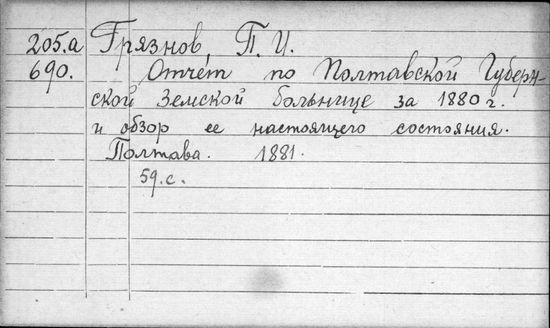 205.а Грязнов, П. И.
690. Отчёт по Полтавской Губерн-
ской Земской больнице за 1880 г.
и обзор ее настоящего состояния.
Полтава. 1881.
59.с.